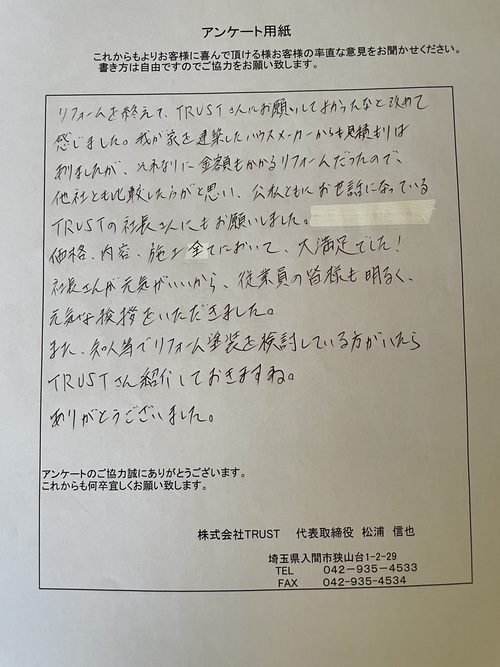 アンケート用紙
これからもよりお客様に喜んで頂ける様お客様の率直な意見をお聞かせください。
書き方は自由ですのでご協力をお願い致します。
リフォームを終えて、TRUSTさんにお願いしてよかったなと改めて
感じました。我が家を建築したハウスメーカーからも見積もりは
ありましたが、それなりに金額もかかるリフォームだったので、
他社とも比較したらがと思い、公私ともにお世話になっている
TRUSTの社長さんにもお願いしました。
価格、内容、施工全てにおいて、大満足でした！
社長さんが元気がいいから、従業員の皆様も明るく、
元気な挨拶をいただきました。
また、知人等でリフォーム塗装を検討している方がいたら
TRUSTさん紹介しておきますね。
ありがとうございました。
アンケートのご協力誠にありがとうございます。
これからも何卒宜しくお願い致します。
株式会社TRUST 代表取締役 松浦 信也
埼玉県入間市狭山台1-2-29
TEL 042-935-4533
FAX 042-935-4534